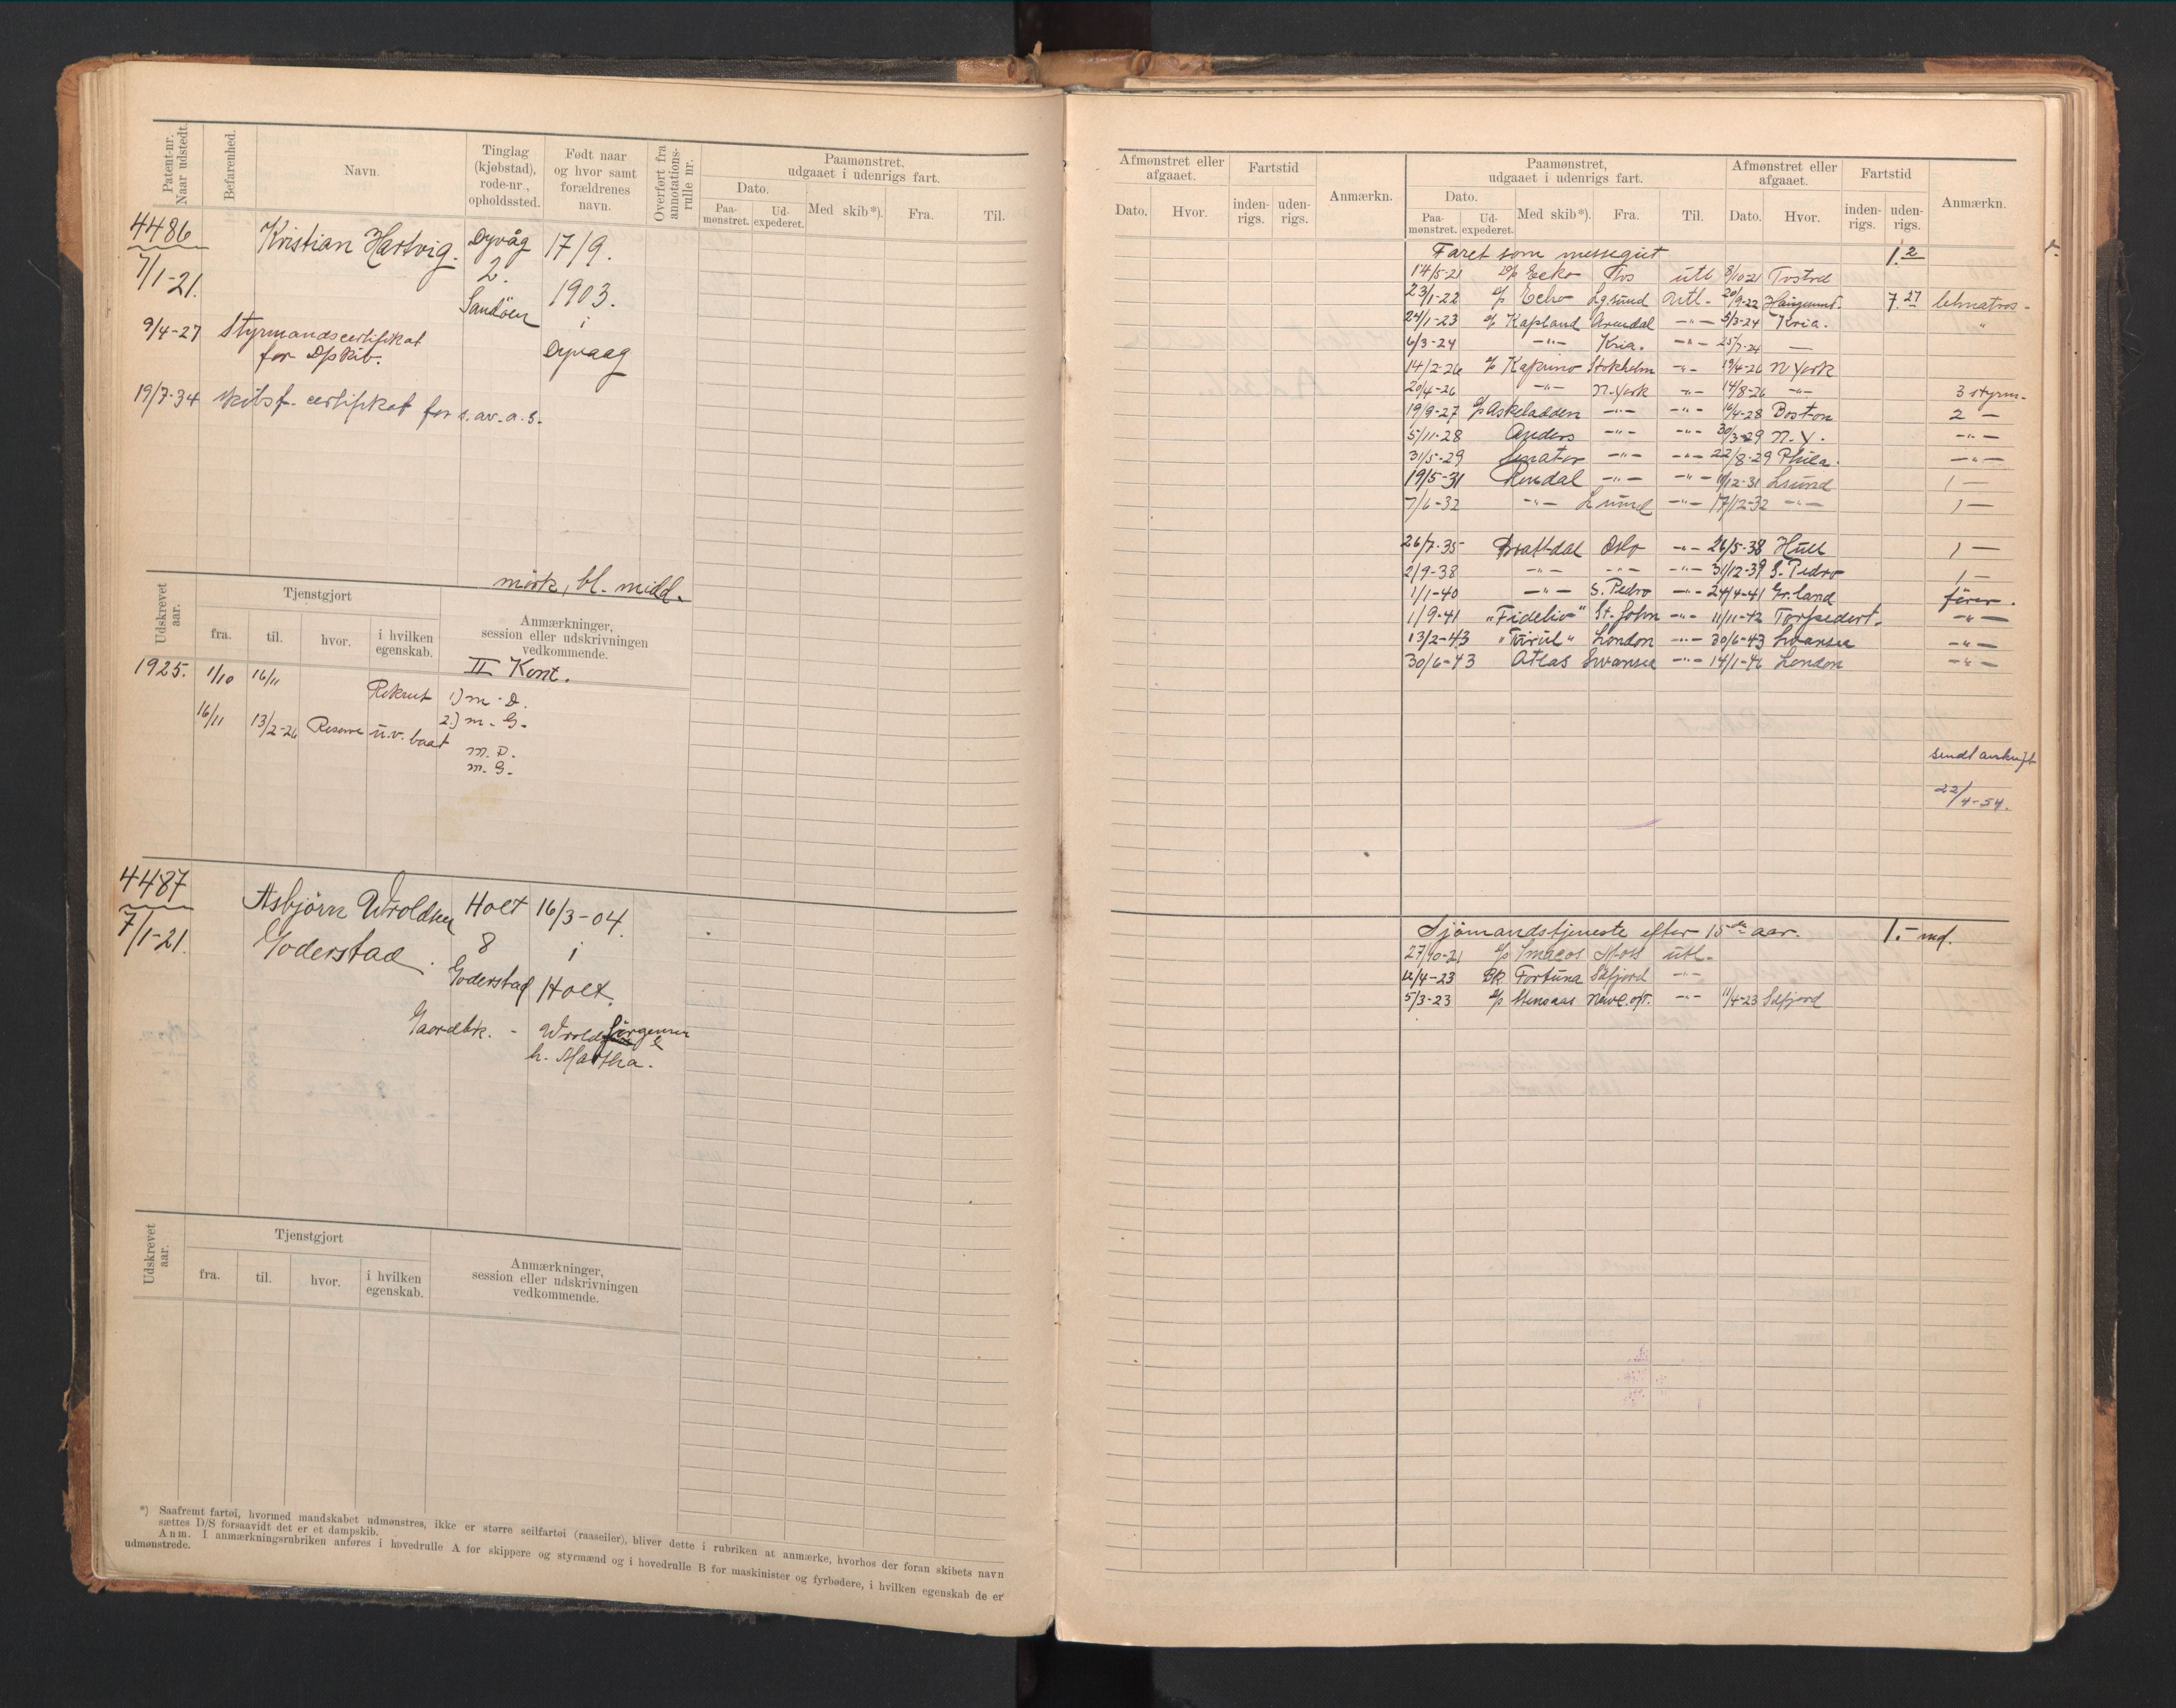 Patent-nr. Naar udstedt.
Befarenhed.
Navn.
Tinglag (kjøbstad), rode-nr., opholdssted.
Født naar og hvor samt forældrenes navn.
Overført fra annotations-rulle nr.
Paamønstret, udgaaet i udenrigs fart.
Dato.
Paa-mønstret. Ud-expederet.
Med skib*).
Fra.
Til.
4486
7/1-21.
Kristian Hartvig.
Dyvåg
2.
Sandöen
17/9.
1903.
i
Dyvaag
9/4-27 Styrmandscertifikat
for D/skib.
19/7-34 skibsf. certifikat for s.av.a.s.
mörk, bl. midd.
Udskrevet aar.
Tjenstgjort
fra. til. hvor. i hvilken egenskab.
Anmærkninger, session eller udskrivningen vedkommende.
II Kont.
1925. 1/10 16/11 Rekrut 1) m. D.
2.) m. G.
16/11 13/2-26 Reserve u.v. baat
m. D.
m. G.
4487
7/1-21.
Asbjørn Wroldsen
Goderstad.
Holt
8
Goderstad
16/3-04.
i
Holt.
Gaardbr. - Wrold Jörgensen
h. Martha.
Udskrevet aar.
Tjenstgjort
fra. til. hvor. i hvilken egenskab.
Anmærkninger, session eller udskrivningen vedkommende.
*) Saafremt fartøi, hvormed mandskabet udmønstres, ikke er større seilfartøi (raaseiler), bliver dette i rubriken at anmærke, hvorhos der foran skibets navn
sættes D/S forsaavidt det er et dampskib.
Anm. I anmærkningsrubriken anføres i hovedrulle A for skippere og styrmænd og i hovedrulle B for maskinister og fyrbødere, i hvilken egenskab de er
udmønstrede.
Afmønstret eller afgaaet.
Dato. Hvor.
Fartstid
inden-rigs. uden-rigs.
Anmærkn.
Paamønstret, udgaaet i udenrigs fart.
Dato.
Paa-mønstret. Ud-expederet.
Med skib*). Fra. Til.
Afmønstret eller afgaaet.
Dato. Hvor.
Fartstid
inden-rigs. uden-rigs.
Anmærkn.
Faret som messegut 1.2
14/5-21 D/s Ecko Tvs utl 8/10 21 Tvstrd
23/1-22 Echo Lgsund utl. 20/9-22 Haugesund. 7.27 letmatros -
24/1-23 Kapland Arendal -"- 5/3-24 Kria. "
6/3-24 -"- Kria. -"- 25/7-24 —
14/2-26 Kaprino Stokholm -"- 19/4-26 N York
20/4-26 -"- N. York -"- 14/8-26 -"- 3 styrm.
19/9-27 Askeladden -"- -"- 16/4-28 Boston 2 —
5/11-28 Anders -"- -"- 30/3-29 N. Y. -"-
31/5-29 Senator -"- -"- 22/8-29 Phila. -"-
19/5-31 Rendal -"- -"- 11/12-31 Lsund 1 —
7/6-32 -"- Lsund -"- 17/12-32 -"- 1 —
26/7-35 Brattdal Oslo -"- 26/5-38 Hull 1 —
2/9-38 -"- -"- -"- 31/12-39 S. Pedro 1 —
1/1-40 -"- S. Pedro -"- 24/4-41 Gr.land fører.
1/9-41 "Fidelio" St. John -"- 11/11-42 Torpedert. -"-
13/2-43 "Törül" London -"- 30/6-43 Swansea -"-
30/6-43 Atlas Swansea -"- 14/1-46 London -"-
sendt avskrift
22/4-54.
Sjömandstjeneste efter 15de aar. 1.- md.
27/10-21 Moss utl.
12/4-23 BK Fortuna Säfjord -"-
5/3-23 Stensaas -"- 11/4-23 Säfjord